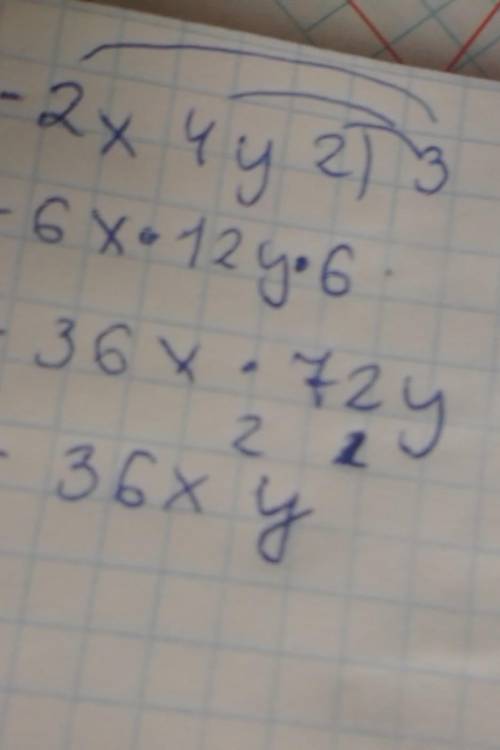 -2x 4y 2) 3
-6x·12y·6
-36x·72y
2 2
-36x y